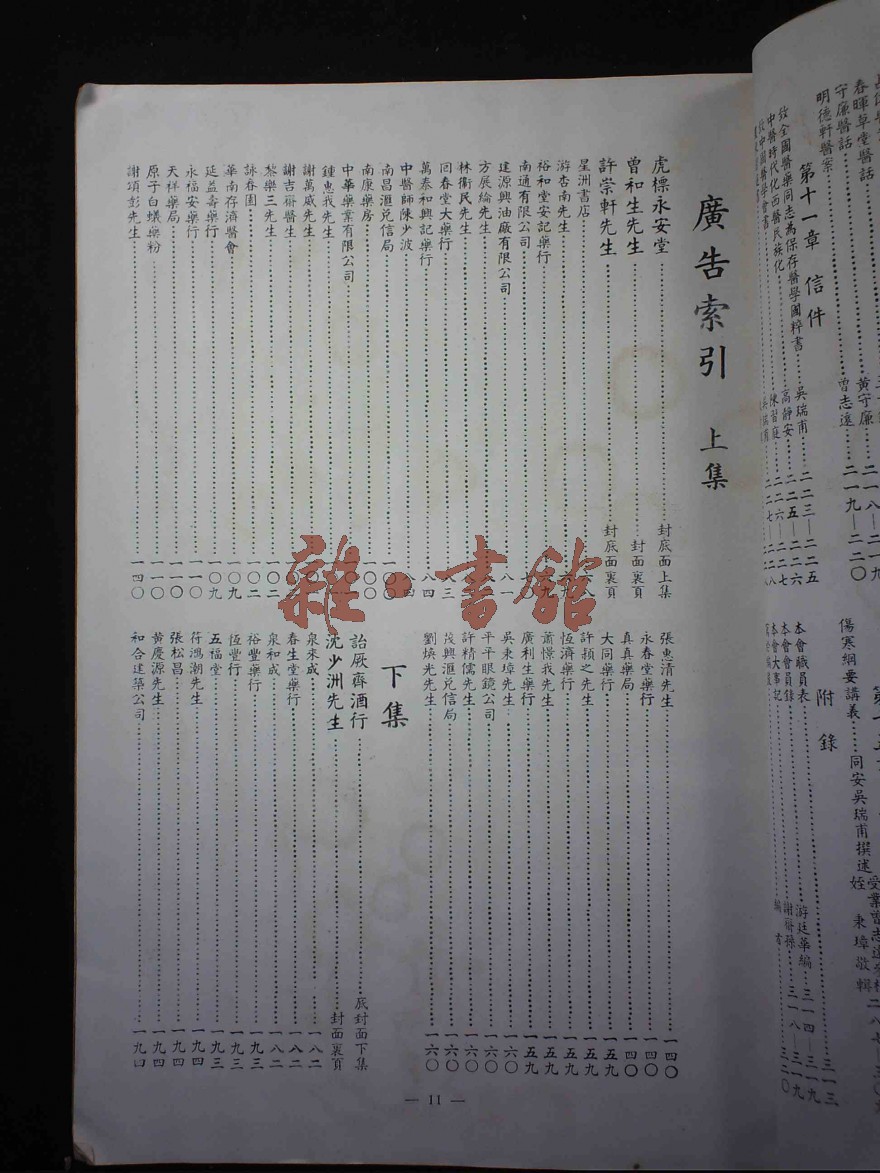 廣告索引 上集
虎標永安堂 封底面上集
曾和生先生 封面裏頁
許崇軒先生 封底面裏頁
星洲書店 六八
游杏南先生
裕和堂安記藥行
南通有限公司
建源興油廠有限公司 八一
方展綸先生
林衛民先生
囘春堂大藥行 八三
萬泰和興記藥行 八四
中醫師陳少波
南昌滙兌信局 一〇〇
南康藥房 一〇〇
中華藥業有限公司
鍾惠我先生
謝萬咸先生
謝吉研醫生
黎樂三先生
詠春園 一〇二
華南存濟醫會 一〇九
延益壽藥行 一〇九
永福安藥行 一一〇
天祥藥局 一一〇
原子白蟻藥粉 一一〇
謝項彭先生 一四〇
張惠清先生 一四〇
永春堂藥行 一四〇
真真藥局 一四〇
大同藥行 一五九
許穎之先生 一五九
恆濟藥行 一五九
蕭憬我先生 一五九
廣利生藥行 一五九
吳秉璋先生 一六〇
平平眼鏡公司 一六〇
許精儒先生 一六〇
茂興滙兌信局 一六〇
劉煥光先生 一六〇
下集
詒厥齊酒行 底封面下集
沈少洲先生 封面裏頁
泉來成 一八二
春生堂藥行 一八二
泉和成 一八二
裕豐藥行 一九三
恆豐行 一九三
五福堂 一九三
荷鴻潮先生 一九四
張松昌 一九四
黃慶源先生 一九四
和合建築公司 一九四
— 11 —
春暉草堂醫話
守廉醫話 黃守廉 二一八—二一九
明德軒醫案 曾志遠 二一九—二二〇
第十一章 信件
致全國醫藥同志為保存醫學國粹書 吳瑞甫 二二三—二二五
中醫時代化西醫民族化 高靜安 二二五—二二六
傷寒綱要講義 同安吳瑞甫撰述
附錄
本會職員表 三一三
本會會員錄 游廷華編 三一四—三一九
本會大事記 謝研孫 三一八—三一九
雜·書館